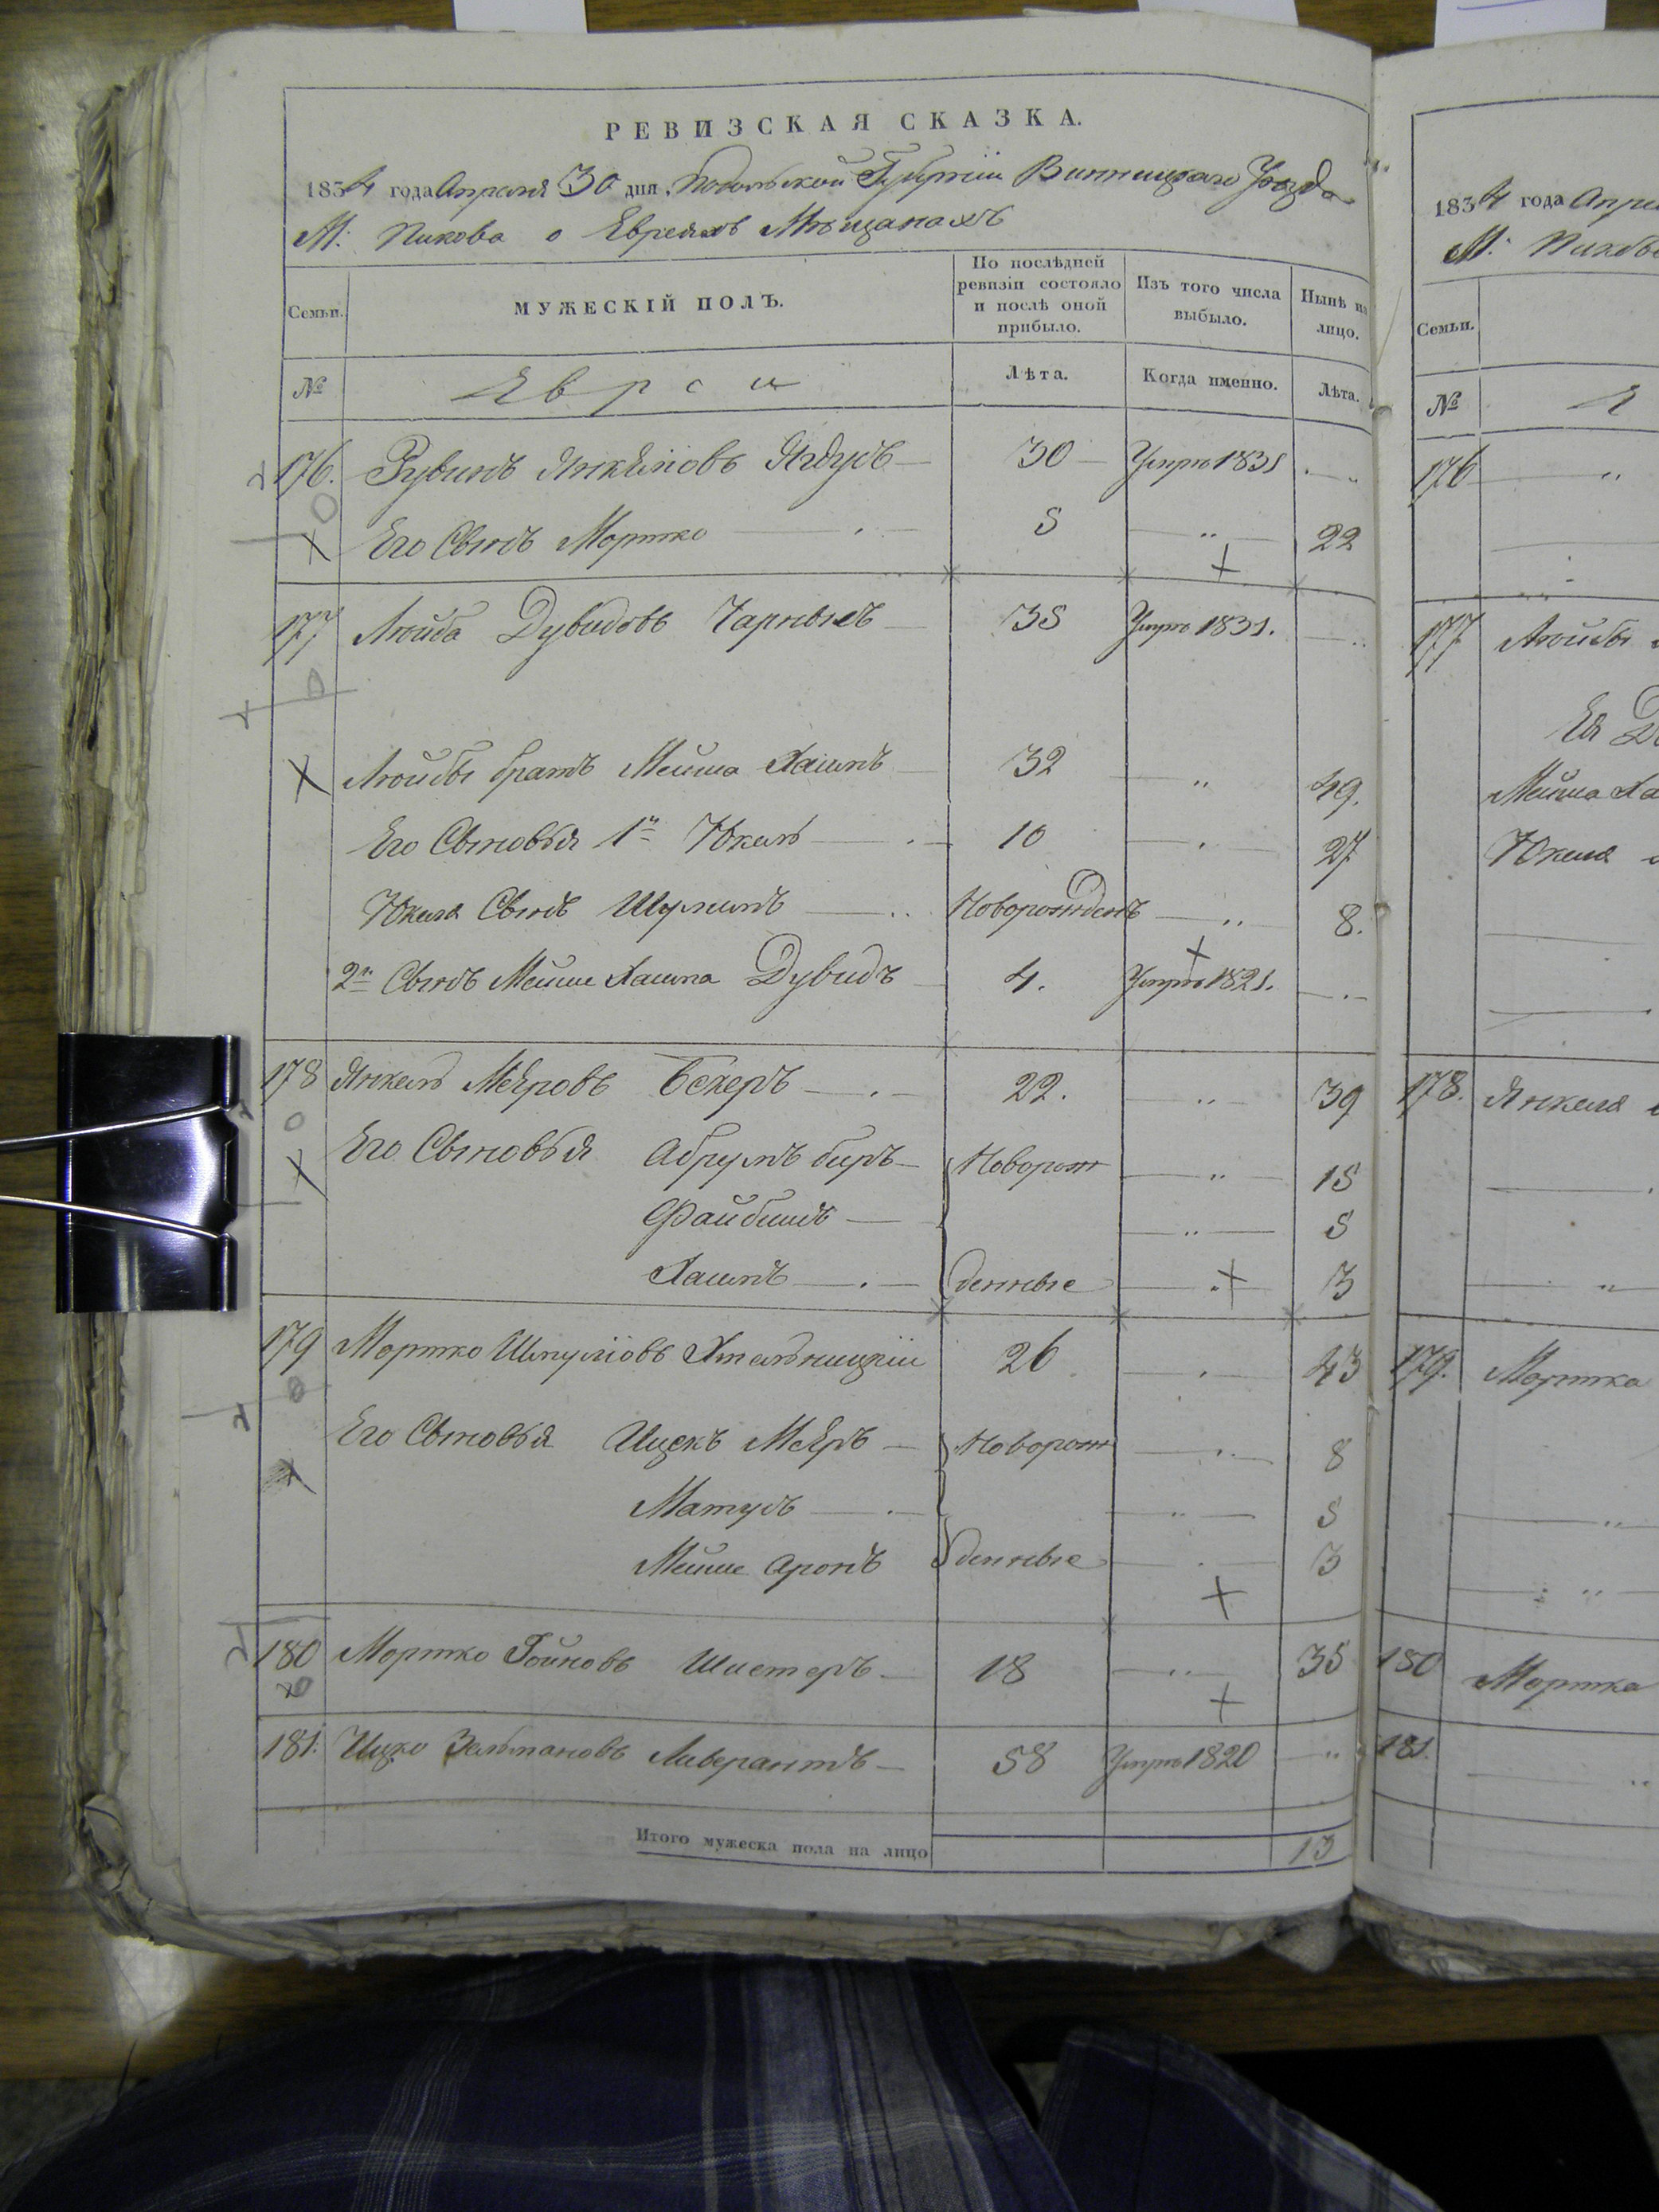 РЕВИЗСКАЯ СКАЗКА.
1834 года Апреля 30 дня, Подольской Губерніи Винницкаго Уѣзда
М: Пикова о Евреяхъ Мѣщанахъ
Семьи. МУЖЕСКІЙ ПОЛЪ. По послѣдней ревизіи состояло и послѣ оной прибыло. Изъ того числа выбыло. Нынѣ на лицо.
№ Евреи Лѣта. Когда именно. Лѣта.
176. Рувинъ Янкелiовъ 30 Умръ 1831 „
Его Сынъ Мортко 5 „ 22
177 Лейба Дувидовъ Чарныхъ 35 Умръ 1831. „
Лейбы братъ Мейша Хаимъ 32 „ 49.
Его Сыновья 1й Юкель 10 „ 27
Юкеля Сынъ Шулимъ Новорожденъ „ 8.
2й Сынъ Мейше Хаима Дувидъ 4. Умръ 1821. „
178 Янкель Меяровъ Бекеръ 22. „ 39
Его Сыновья Абрумъ беръ Новорож „ 15
Файбишъ „ 5
Хаимъ денные „ 3
179 Мортко Шмулiовъ Хмельницкіи 26 „ 43
Его Сыновья Ицекъ Меяръ Новорож „ 8
Матусъ „ 5
Мейше Аронъ денные „ 3
180 Мортко Шистеръ 18 „ 35
181. Ицко Зельмановъ Ливерантъ 58 Умръ 1820 „
Итого мужеска пола на лицо 13
1834 года
М:
Семьи.
№
176 „
177 Лейбы
Ея
Мейша Ха
Юкеля
178. Янкеля
179. Мортка
180 Мортка
181. „